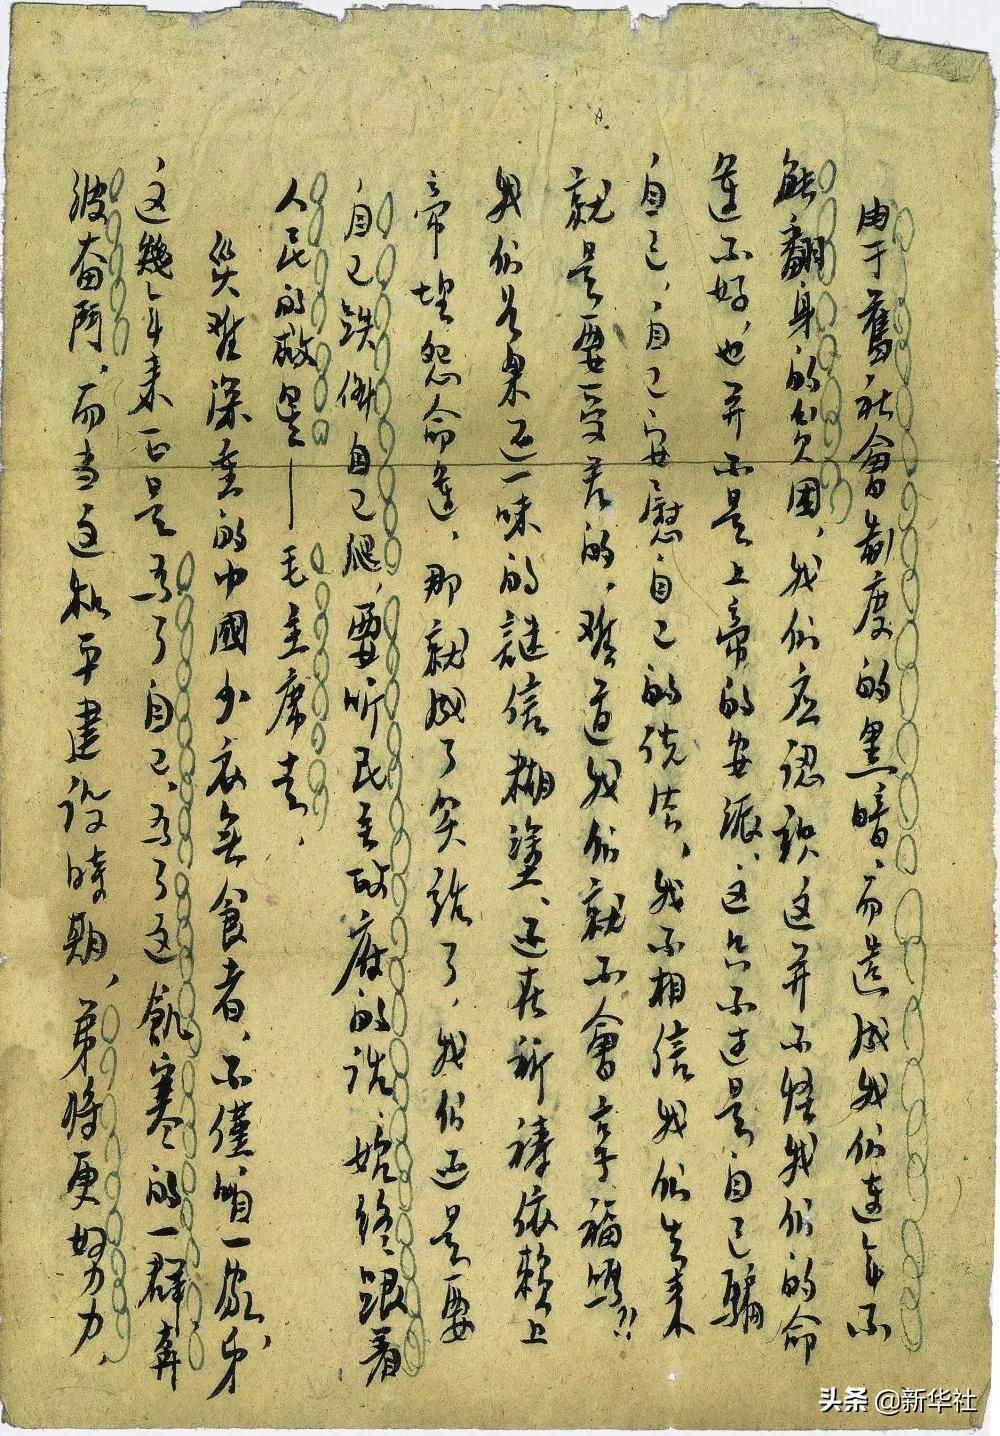 由于舊社會制度的黑暗，而造成我们連年不
能翻身的貧困，我们应認識这并不怪我们的命
運不好，也并不是上帝的安派，这只不过是自己騙
自己，自己安慰自己的说法，我不相信我们生来
就是要受苦的，难道我们就不會享福嗎？！
我们若果还一味的謎信糊塗、还在祈禱依赖上
帝埋怨命運，那就成了笑話了，我们还是要
自己跌倒自己爬，要听民主政府的話，始终跟着
人民的救星——毛主席走，
災难深重的中國少衣無食者，不僅咱一家，弟
这幾年来正是為了自己、為了这飢寒的一群奔
波奋鬥，而当这和平建设時期，弟將更努力，
头条 @新华社